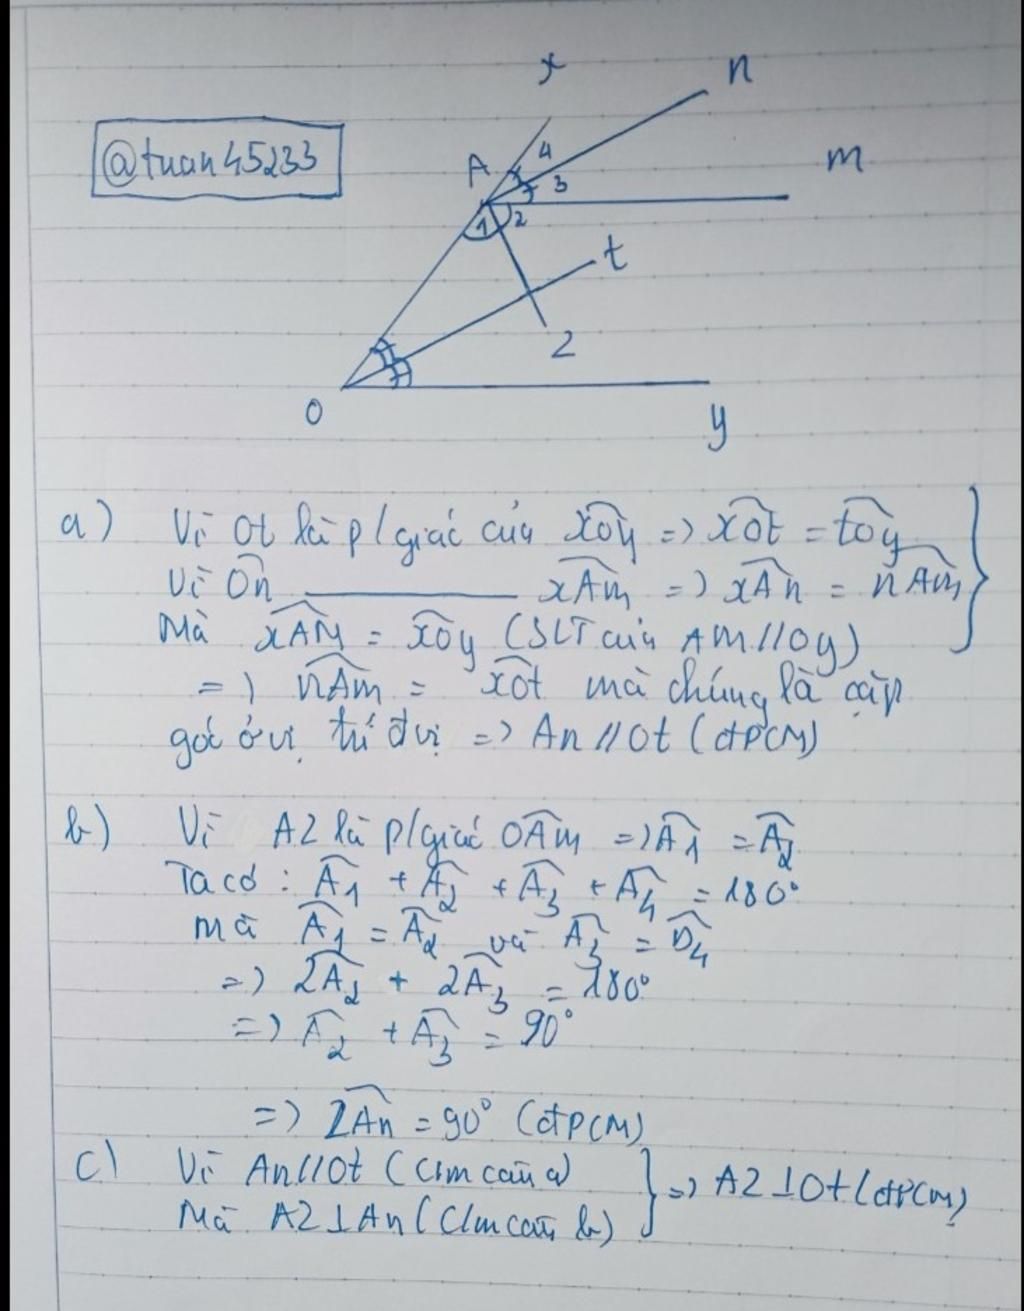 x
n
@tuan45233
A
4
m
3
1
2
t
z
O
y
a) Vì Ot là p/giác của xOy => xOt = tOy
Vì On ———— xAm => xAn = nAm
Mà xAM = xOy (SLT của AM//Oy)
=> nAm = xOt mà chúng là cặp
góc ở vị trí đvị => An//Ot (đPCM)
b) Vì AZ là p/giác OAm => A1 = A2
Ta có: A1 + A2 + A3 + A4 = 180°
mà A1 = A2 và A3 = D4
=> 2A2 + 2A3 = 180°
=> A2 + A3 = 90°
=> ZAn = 90° (đPCM)
c) Vì An//Ot (C/m câu a)
Mà AZ⊥An (C/m câu b)
=> AZ⊥Ot (đPCM)